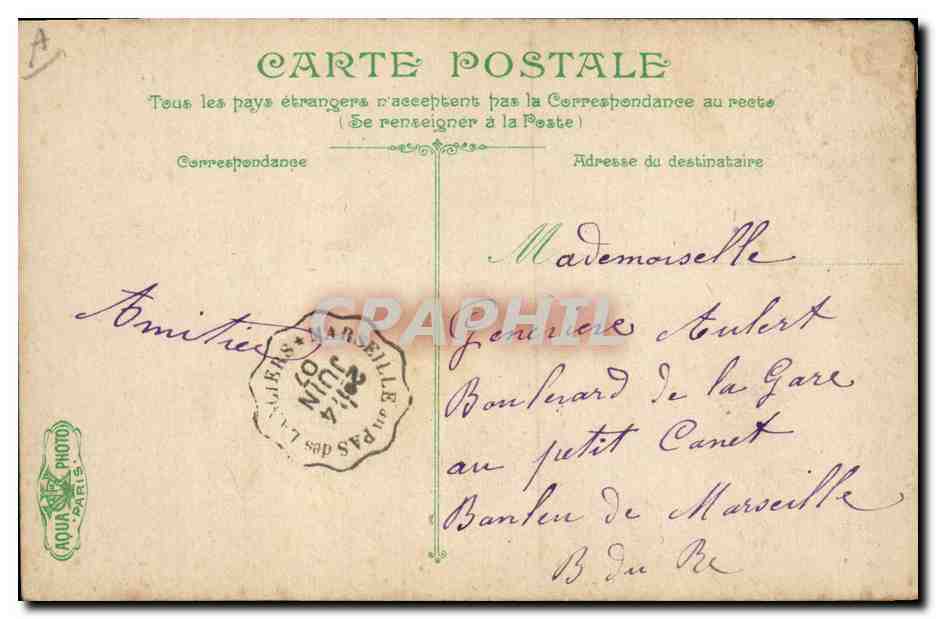 A
CARTE POSTALE
Tous les pays étrangers n'acceptent pas la Correspondance au recto
(Se renseigner à la Poste)
Correspondance
Adresse du destinataire
Amitiés
MARSEILLE au PAS des LANCIERS
JUIN
07
CPAPHIL
Mademoiselle
Genevieve Aubert
Boulevard de la Gare
au petit Canet
Banlieu de Marseille
B du Re
AQUA PHOTO
PARIS